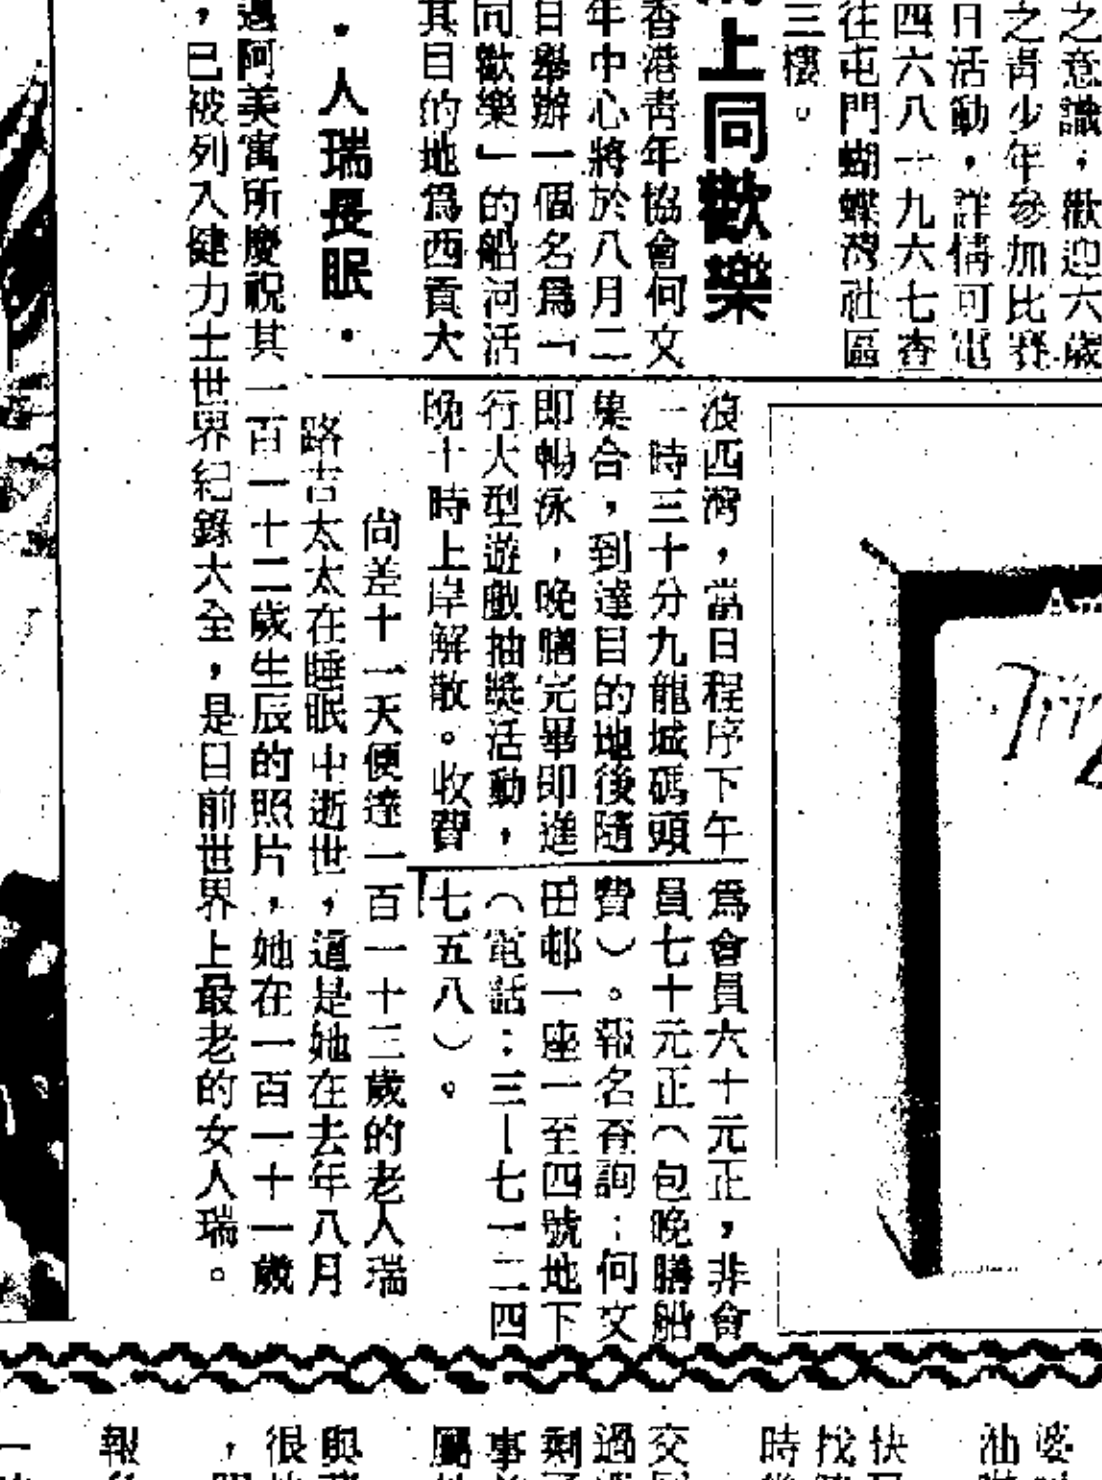 之意識，歡迎六歲
之靑少年參加比賽
日活動，詳情可電
四六八一九六七査
往屯門蝴蝶灣社區
三樓。
上同歡樂
香港靑年協會何文
年中心將於八月二
目舉辦一個名爲「
同歡樂」的船河活
其目的地爲西貢大
浪西灣，當日程序下午
一時三十分九龍城碼頭
集合，到達目的地後隨
即暢泳，晚膳完畢即進
行大型遊戲抽獎活動，
晚十時上岸解散。收費
爲會員六十元正，非會
員七十元正（包晚膳船
費）。報名査詢：何文
田邨一座一至四號地下
（電話：三—七一二四
七五八）。
．人瑞長眠．
尙差十一天便達一百一十三歲的老人瑞
路吉太太在睡眠中逝世，這是她在去年八月
阿美寓所慶祝其一百一十二歲生辰的照片，她在一百一十一歲
，已被列入健力士世界紀錄大全，是日前世界上最老的女人瑞。
婆
油
快
找
時
交
過
剩
事
屬
與
很
，
報
一